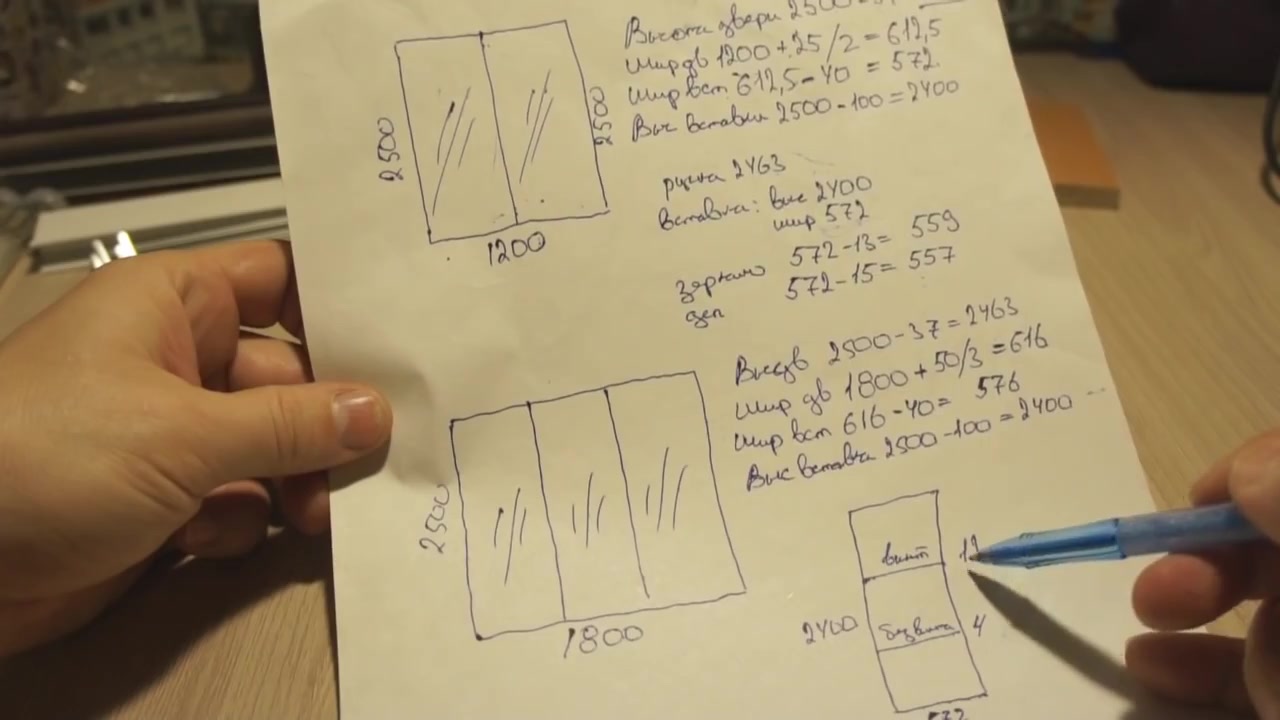 Высота двери 2500-37
шир дв 1200+25/2=612,5
шир вст 612,5-40 = 572
Выс вставки 2500-100=2400
2500
2500
1200
ручка 2463
вставка: выс 2400
шир 572
зеркало 572-13= 559
дсп 572-15= 557
Выс дв 2500-37=2463
шир дв 1800+50/3=616
шир вст 616-40= 576
Выс вставки 2500-100=2400
2500
1800
винт
без винта 4
2400
572